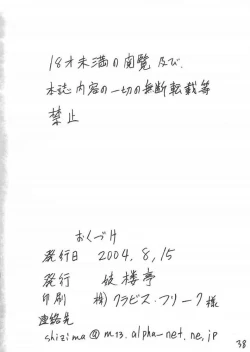 18才未満の閲覧及び
本誌内容の一切の無断転載等
禁止
おくづけ
発行日 2004.8.15
発行 楼亭
印刷 (株)クラビス・フリーク様
連絡先
shizima@m13.alpha-net.ne.jp
38